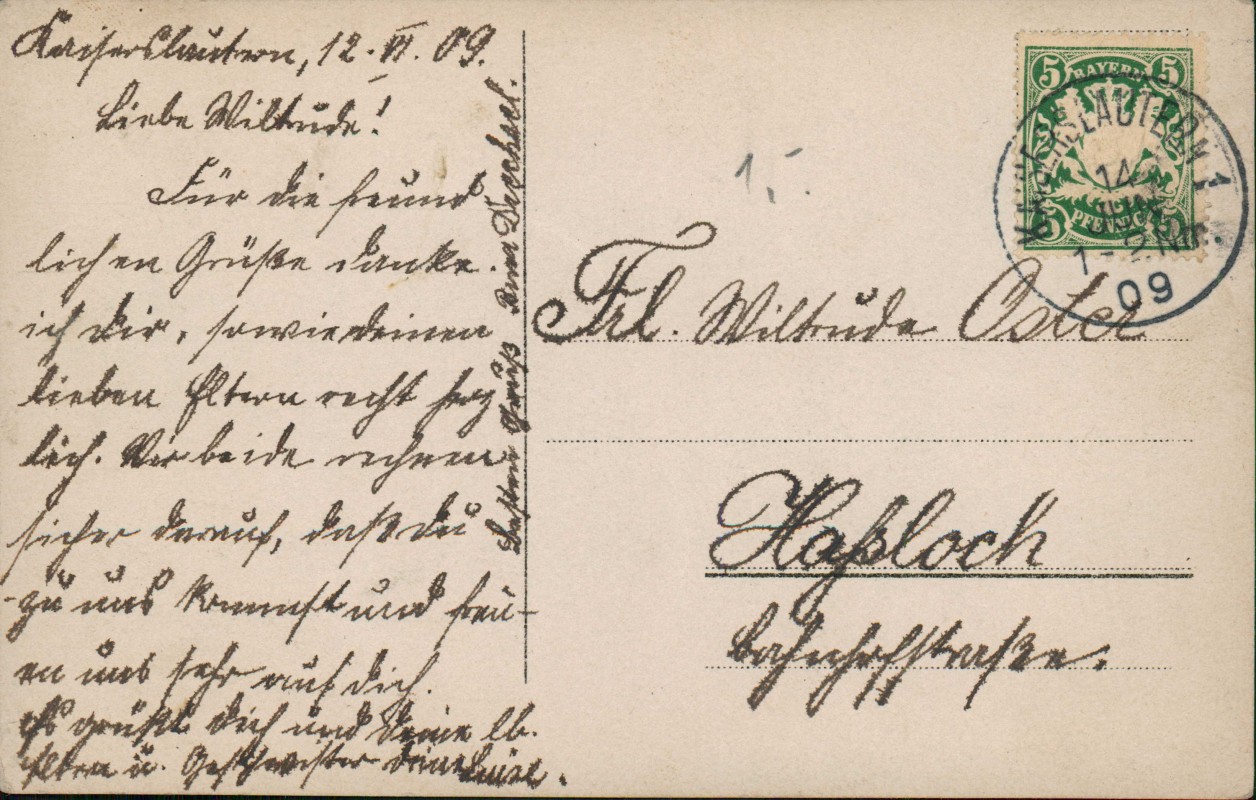 Kaiserslautern, 12. VI. 09.
Liebe Wiltrude!
Für die freund
lichen Grüße danke
ich dir, sowie deinen
lieben Eltern recht herz
lich. Wir beide rechnen
sicher darauf, daß du
zu uns kommst und freu-
en uns sehr auf dich.
Es grüßt dich und deine lb.
Eltern u. Geschwister deine Luise.
Besten Gruß
1,-
5 BAYERN 5
5 PFENNIG 5
KAISERSLAUTERN 1
14 JUN
1-2 Nm.
09
Frl. Wiltrude Oster
Haßloch
Bahnhofstraße.